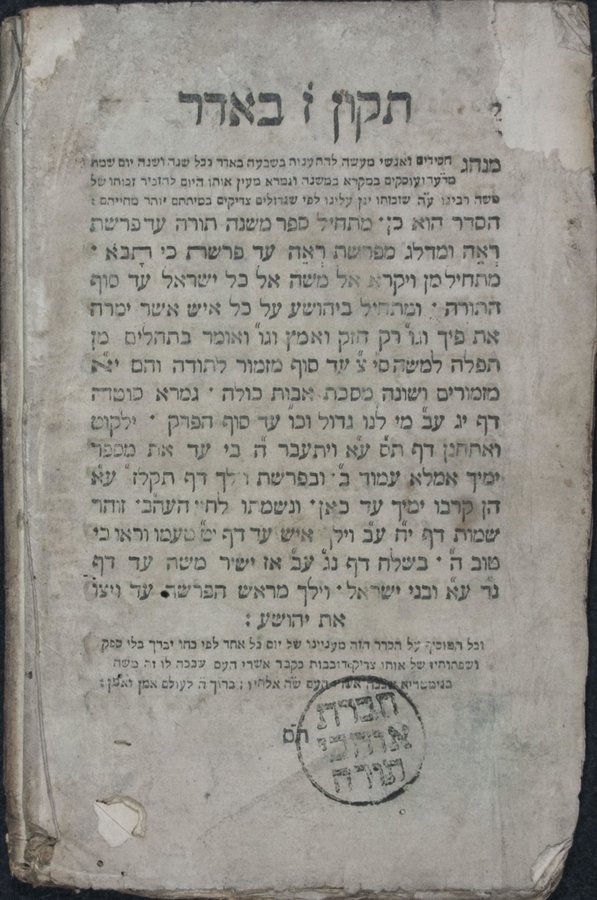 תקון ז באדר
מנהג חסידים ואנשי מעשה להתענות בשבעה באדר בכל שנה ושנה יום שמת
מרע״ה ועוסקים במקרא במשנה וגמרא מעין אותו היום להזכיר זכותו של
משה רבינו ע״ה שזכותו יגן עלינו לפי שגדולים צדיקים במיתתם יותר מחייהם :
הסדר הוא כן · מתחיל ספר משנה תורה עד פרשת
רְאֵה ומדלג מפרשת רְאֵה עד פרשת כי תבֹא ·
מתחיל מן ויקרא אל משה אל כל ישראל עד סוף
התורה · ומתחיל ביהושע על כל איש אשר ימרה
את פיך וגו׳ רק חזק ואמץ וגו׳ ואומר בתהלים מן
תפלה למשה סי׳ צ׳ עד סוף מזמור לתודה והם י״א
מזמורים ושונה מסכת אבות כולה · גמרא סוטה
דף יג ע״ב מי לנו גדול וכו׳ עד סוף הפרק · ילקוט
ואתחנן דף תס ע״א ויתעבר ה׳ בי עד את מספר
ימיך אמלא עמוד ב׳ ובפרשת וילך דף תקלז ע״א
הן קרבו ימיך עד כאן · ונשמתו לחיי העה״ב · זוהר
שמות דף י״ח ע״ב וילך איש עד דף י״ט טעמו וראו כי
טוב ה׳ · בשלח דף נג ע״ב אז ישיר משה עד דף
נד ע״א ובני ישראל · וילך מראש הפרשה עד ויצו
את יהושע :
וכל המוסיף על הסדר הזה מענייננו של יום כל אחד לפי כחו יברך בלי ספק
ושפתותיו של אותו צדיק דובבות בקבר אשרי העם שככה לו זה משה
בגימטריא שככה אשרי העם שה׳ אלהיו : ברוך ה׳ לעולם אמן ואמן :
תס
חברת
אוהבי
תורה